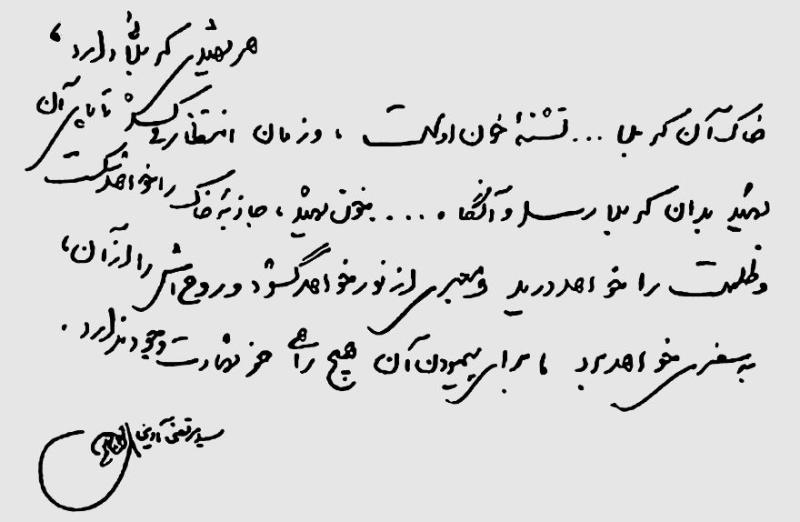 هر شهیدی کربلائی دارد،
خاک آن کربلا ... تشنهٔ خون اوست ، و زمان انتظار می‌کشد تا پای آن
شهید بدان کربلا رسد و آنگاه .... خون شهید ، جاذبهٔ خاک را خواهد شکست
و ظلمت را خواهد درید و معبری از نور خواهد گشود و روحش را از آن،
به سفری خواهد برد که برای پیمودن آن هیچ راهی جز شهادت وجود ندارد .
سید مرتضی آوینی